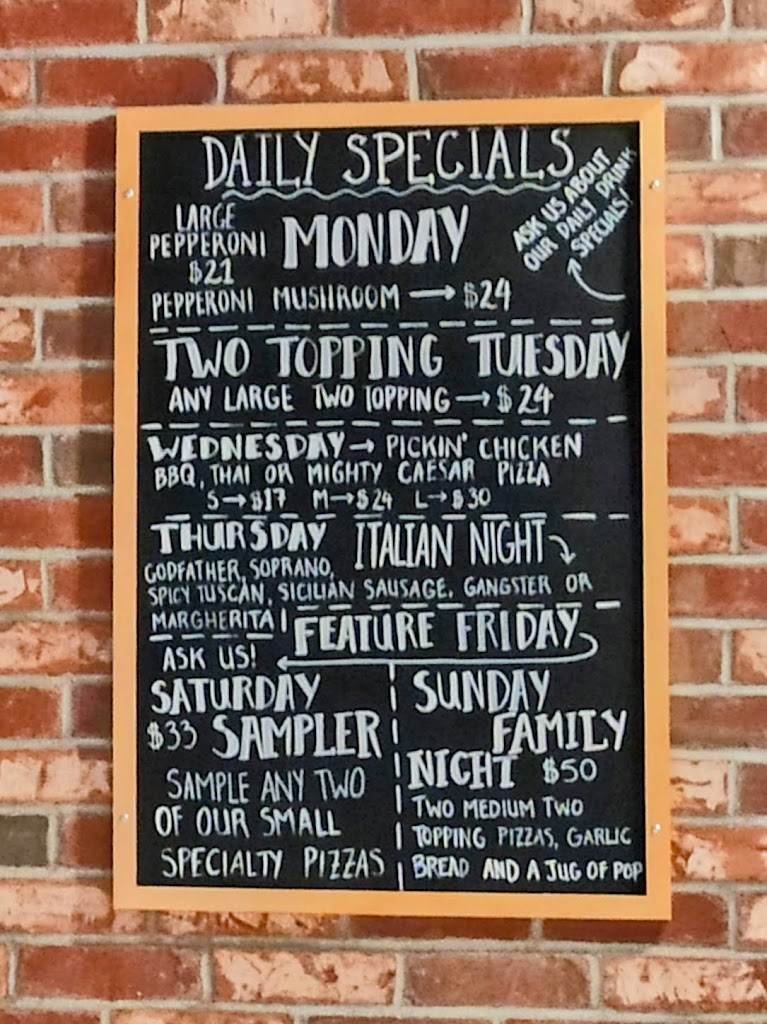 DAILY SPECIALS
ASK US ABOUT
OUR DAILY DRINK
SPECIALS!
LARGE
PEPPERONI
$21
MONDAY
PEPPERONI MUSHROOM → $24
TWO TOPPING TUESDAY
ANY LARGE TWO TOPPING → $24
WEDNESDAY → PICKIN' CHICKEN
BBQ, THAI OR MIGHTY CAESAR PIZZA
S → $17 M → $24 L → $30
THURSDAY ITALIAN NIGHT
GODFATHER, SOPRANO,
SPICY TUSCAN, SICILIAN SAUSAGE, GANGSTER OR
MARGHERITA
FEATURE FRIDAY
ASK US!
SATURDAY
$33 SAMPLER
SAMPLE ANY TWO
OF OUR SMALL
SPECIALTY PIZZAS
SUNDAY
FAMILY
NIGHT $50
TWO MEDIUM TWO
TOPPING PIZZAS, GARLIC
BREAD AND A JUG OF POP